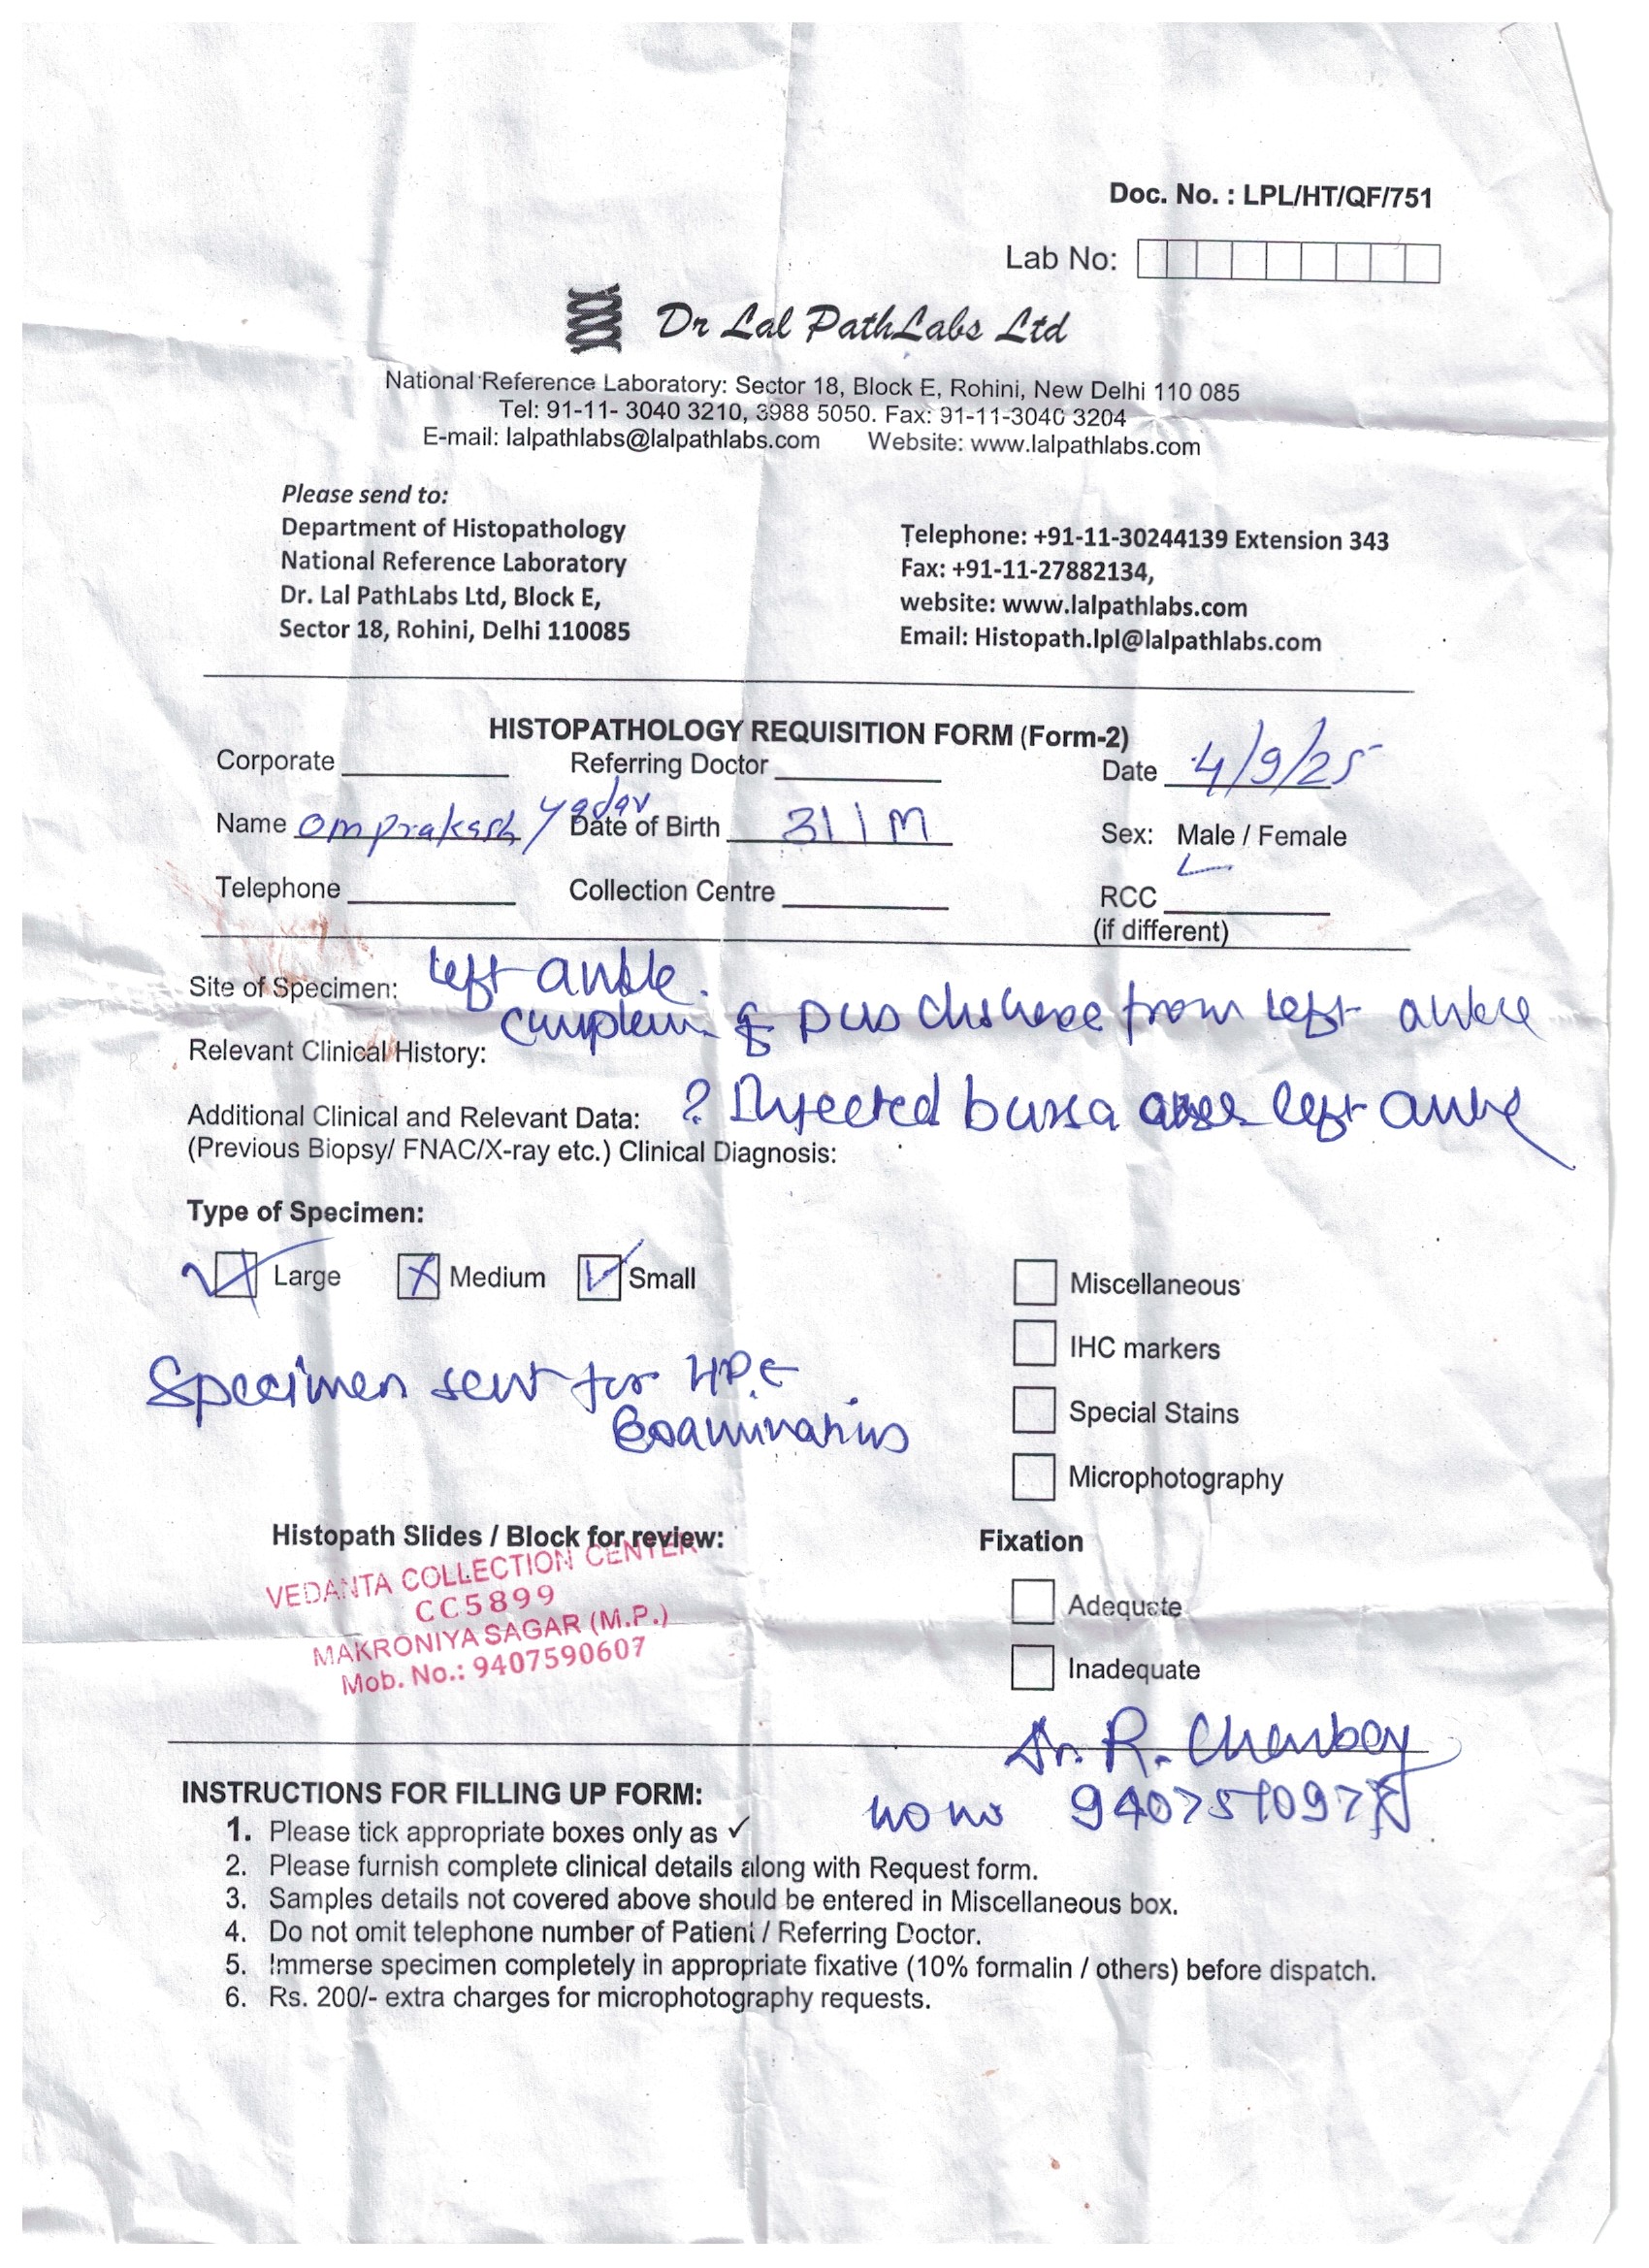 Doc. No. : LPL/HT/QF/751
Lab No:
Dr Lal PathLabs Ltd
National Reference Laboratory: Sector 18, Block E, Rohini, New Delhi 110 085
Tel: 91-11- 3040 3210, 3988 5050. Fax: 91-11-3040 3204
E-mail: lalpathlabs@lalpathlabs.com Website: www.lalpathlabs.com
Please send to:
Department of Histopathology
National Reference Laboratory
Dr. Lal PathLabs Ltd, Block E,
Sector 18, Rohini, Delhi 110085
Telephone: +91-11-30244139 Extension 343
Fax: +91-11-27882134,
website: www.lalpathlabs.com
Email: Histopath.lpl@lalpathlabs.com
HISTOPATHOLOGY REQUISITION FORM (Form-2)
Corporate Referring Doctor Date 4/9/25
Name Omprakash Yadav Date of Birth 31 | M Sex: Male / Female
Telephone Collection Centre RCC
(if different)
Site of Specimen: left ankle.
Relevant Clinical History: of pus from left ankle
Additional Clinical and Relevant Data: ? Infected bursa left ankle
(Previous Biopsy/ FNAC/X-ray etc.) Clinical Diagnosis:
Type of Specimen:
Large Medium Small
Miscellaneous
IHC markers
Special Stains
Microphotography
Specimen sent for H.P.E
Examination
Histopath Slides / Block for review:
VEDANTA COLLECTION CENTER
CC5899
MAKRONIYA SAGAR (M.P.)
Mob. No.: 9407590607
Fixation
Adequate
Inadequate
Dr. R.
INSTRUCTIONS FOR FILLING UP FORM:
1. Please tick appropriate boxes only as ✓
2. Please furnish complete clinical details along with Request form.
3. Samples details not covered above should be entered in Miscellaneous box.
4. Do not omit telephone number of Patient / Referring Doctor.
5. Immerse specimen completely in appropriate fixative (10% formalin / others) before dispatch.
6. Rs. 200/- extra charges for microphotography requests.